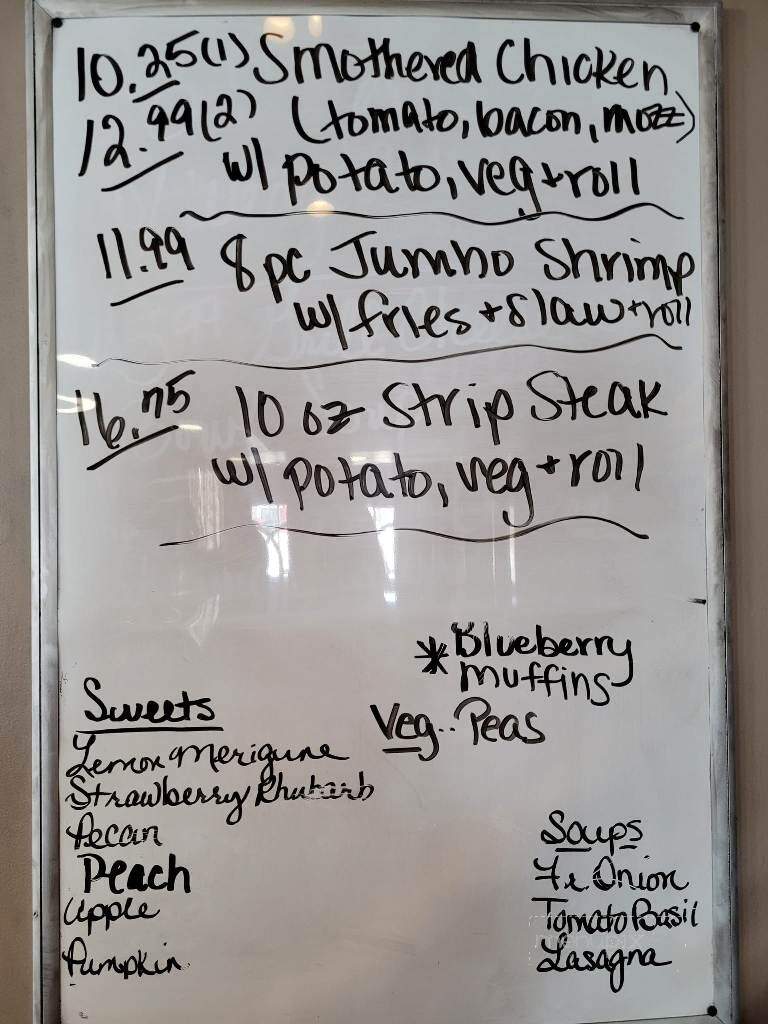 10.25(1) Smothered Chicken
12.99(2) (tomato, bacon, mozz)
w/ potato, veg + roll
11.99 8pc Jumbo Shrimp
w/ fries + slaw + roll
16.75 10 oz Strip Steak
w/ potato, veg + roll
* Blueberry
muffins
Veg.. Peas
Sweets
Lemon Merigune
Strawberry Rhubarb
Pecan
Peach
Apple
Pumpkin
Soups
Fr. Onion
Tomato Basil
Lasagna